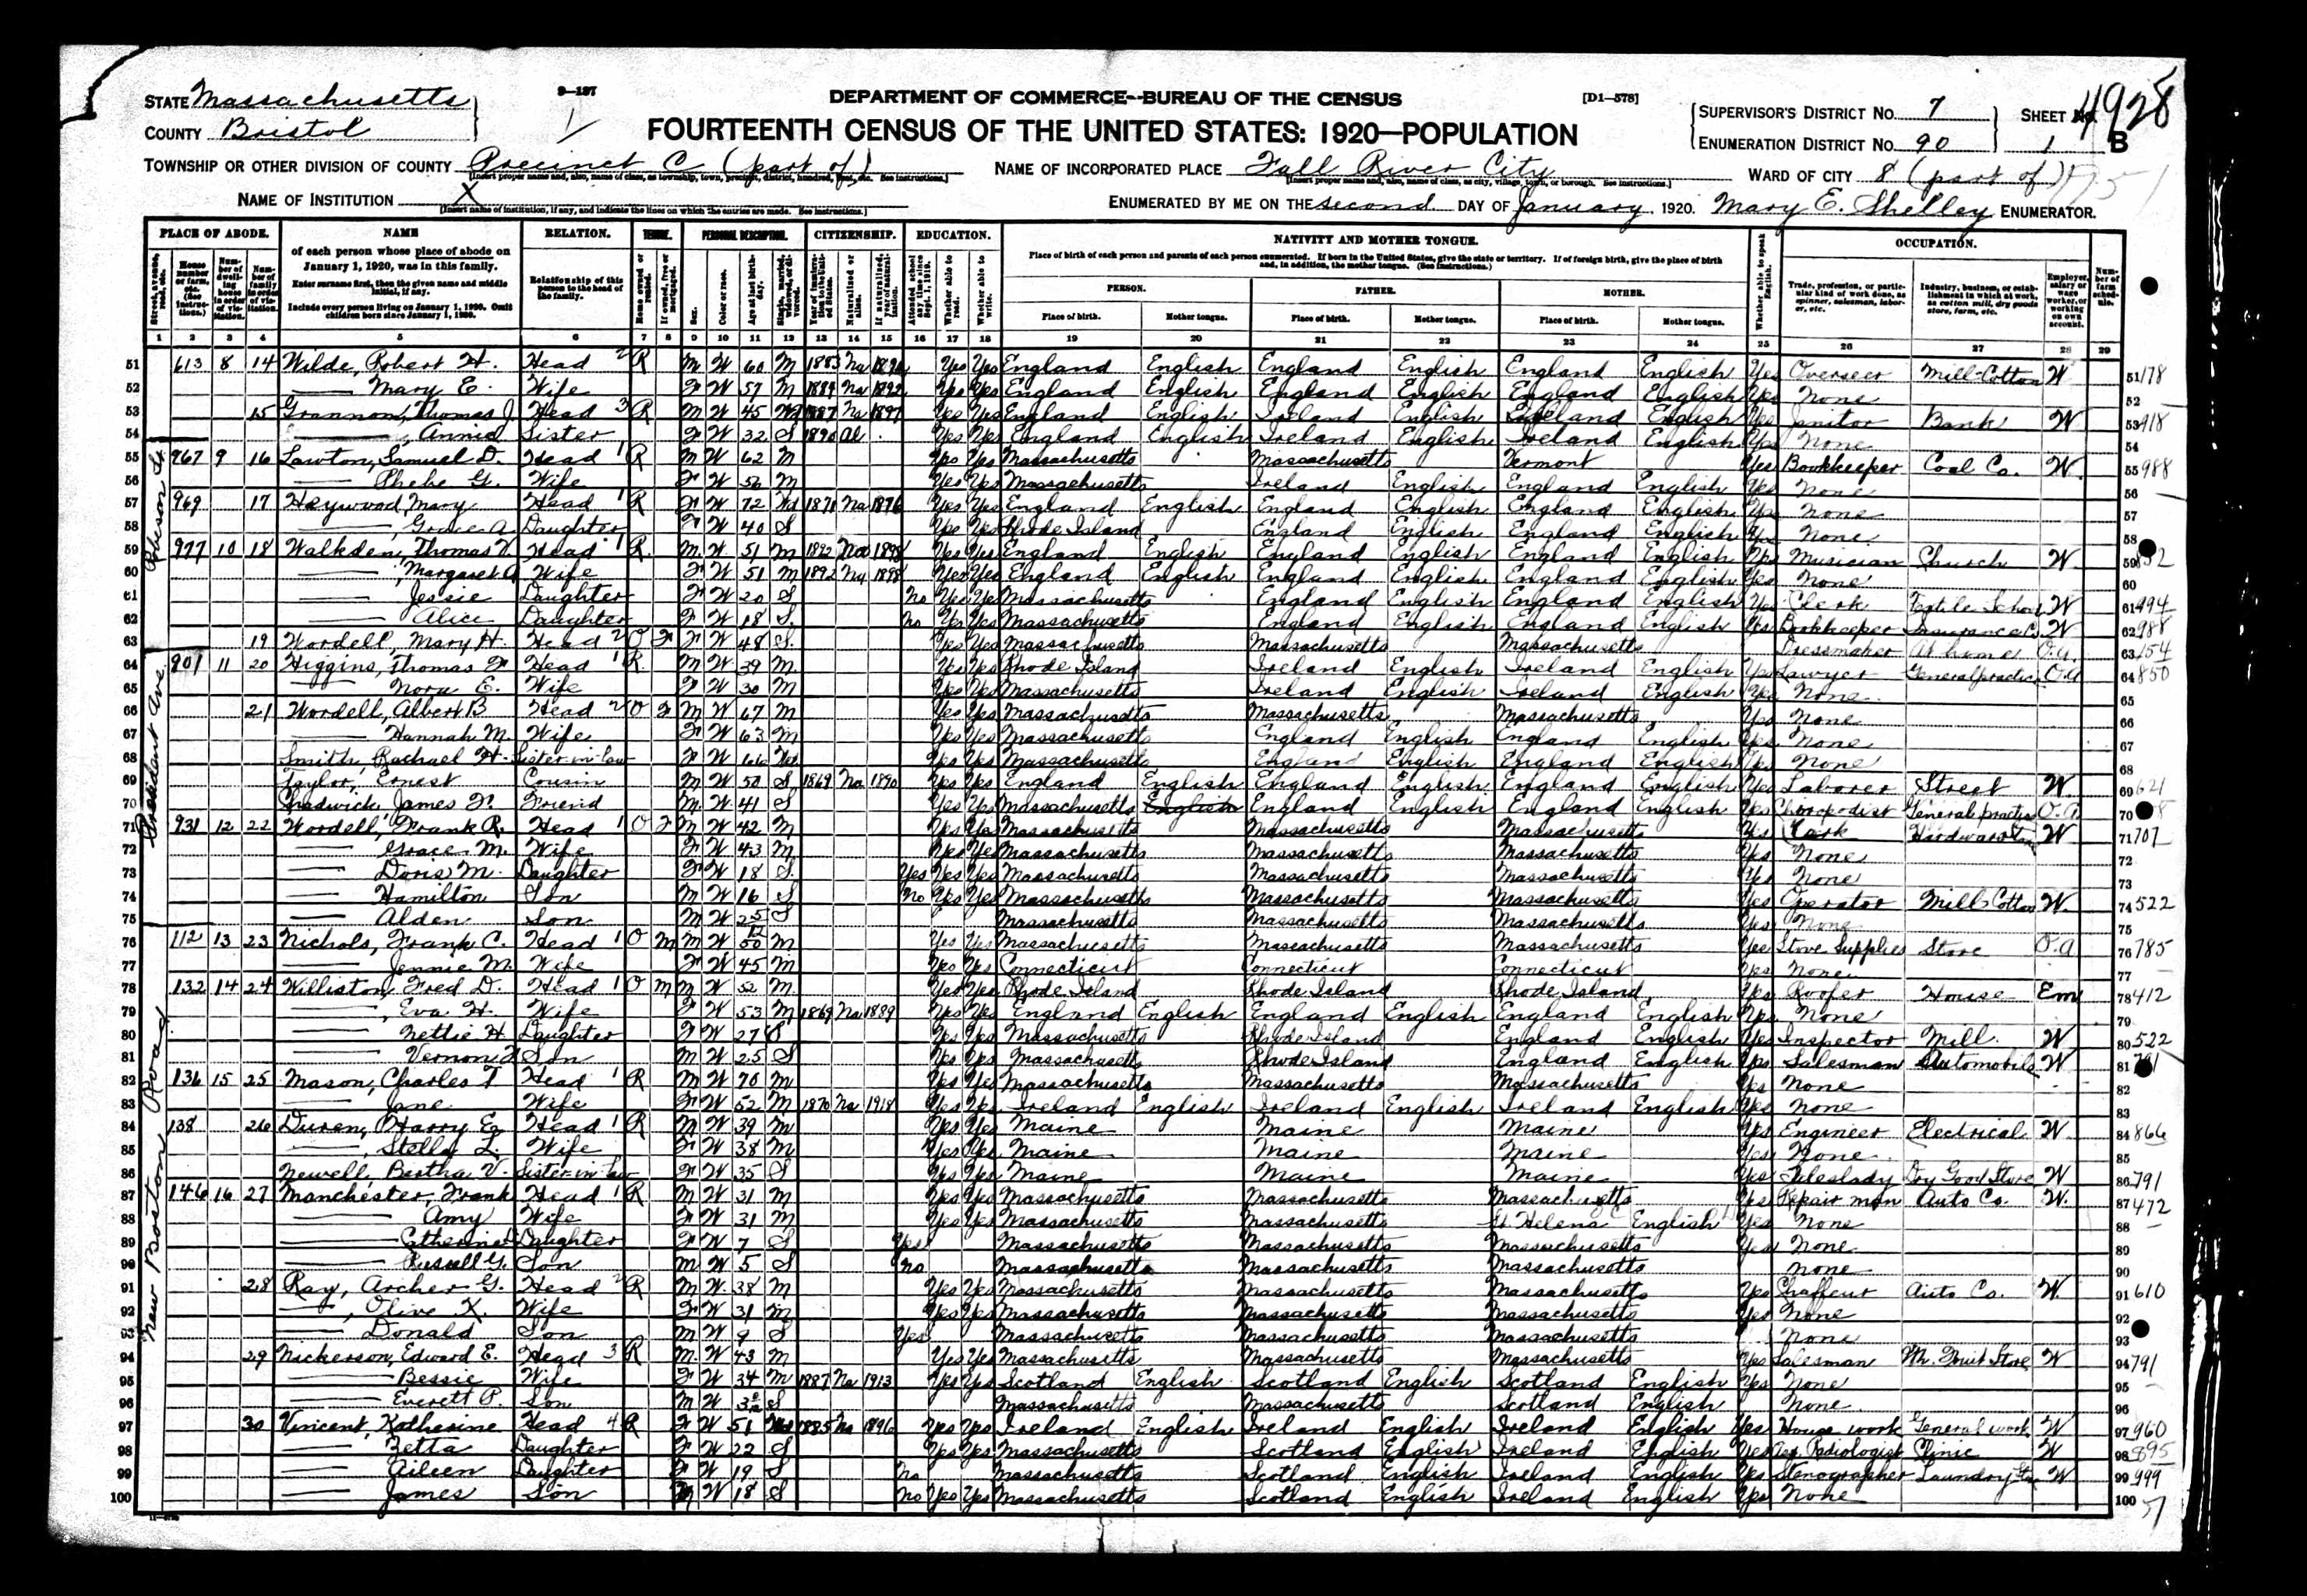 STATE Massachusetts
COUNTY Bristol
9—137
DEPARTMENT OF COMMERCE--BUREAU OF THE CENSUS
[D1—578]
FOURTEENTH CENSUS OF THE UNITED STATES: 1920—POPULATION
SUPERVISOR'S DISTRICT No. 7
ENUMERATION DISTRICT No. 90
SHEET No. 1 B
4928
TOWNSHIP OR OTHER DIVISION OF COUNTY Precinct C (part of)
NAME OF INCORPORATED PLACE Fall River City
WARD OF CITY 8 (part of)
NAME OF INSTITUTION X
ENUMERATED BY ME ON THE second DAY OF January, 1920. Mary E. Shelley ENUMERATOR.
PLACE OF ABODE. NAME RELATION. TENURE. PERSONAL DESCRIPTION. CITIZENSHIP. EDUCATION. NATIVITY AND MOTHER TONGUE. OCCUPATION.
of each person whose place of abode on January 1, 1920, was in this family.
Enter surname first, then the given name and middle initial, if any.
Include every person living on January 1, 1920. Omit children born since January 1, 1920.
Relationship of this person to the head of the family.
Place of birth of each person and parents of each person enumerated. If born in the United States, give the state or territory. If of foreign birth, give the place of birth and, in addition, the mother tongue. (See instructions.)
PERSON. FATHER. MOTHER.
Place of birth. Mother tongue. Place of birth. Mother tongue. Place of birth. Mother tongue.
1 2 3 4 5 6 7 8 9 10 11 12 13 14 15 16 17 18 19 20 21 22 23 24 25 26 27 28 29
51 613 8 14 Wilde, Robert H. Head 2 R M W 60 M 1883 Na Yes Yes England English England English England English Yes Overseer Mill-Cotton W 51 178
52 Mary E. Wife F W 57 M 1889 Na 1892 Yes Yes England English England English England English Yes None 52
53 15 Grannon, Thomas J. Head 3 R M W 45 1887 Na 1897 Yes Yes England English Ireland English Ireland English Yes Janitor Bank W 53 918
54 Annie Sister F W 32 S 1890 Al Yes Yes England English Ireland English Ireland English Yes None 54
55 967 9 16 Lawton, Samuel D. Head 1 R M W 62 M Yes Yes Massachusetts Massachusetts Vermont Yes Bookkeeper Coal Co. W 55 988
56 Phebe G. Wife F W 56 M Yes Yes Massachusetts Ireland English England English Yes None 56
57 969 17 Heywood, Mary Head 1 R F W 72 Wd 1871 Na 1876 Yes Yes England English England English England English Yes None 57
58 Grace A. Daughter F W 40 S Yes Yes Rhode Island England English England English Yes None 58
59 977 10 18 Walkden, Thomas Head 1 R M W 51 M 1892 Na 1898 Yes Yes England English England English England English Yes Musician Church W 59
60 Margaret A Wife F W 51 M 1892 Na 1898 Yes Yes England English England English England English Yes None 60
61 Jessie Daughter F W 20 S No Yes Yes Massachusetts England English England English Yes Clerk Textile School W 61 994
62 Alice Daughter F W 18 S No Yes Yes Massachusetts England English England English Yes Bookkeeper Insurance Co W 62 988
63 19 Wordell, Mary H. Head 2 O F F W 48 S Yes Yes Massachusetts Massachusetts Massachusetts Dressmaker At home O.A. 63 154
64 901 11 20 Higgins, Thomas F Head 1 R M W 39 M Yes Yes Rhode Island Ireland English Ireland English Yes Lawyer General practice O.A 64 850
65 Nora E. Wife F W 30 M Yes Yes Massachusetts Ireland English Ireland English Yes None 65
66 21 Wordell, Albert B Head 2 O F M W 67 M Yes Yes Massachusetts Massachusetts Massachusetts Yes None 66
67 Hannah M. Wife F W 63 M Yes Yes Massachusetts England English England English Yes None 67
68 Smith, Rachael H. Sister-in-law F W 66 Wd Yes Yes Massachusetts England English England English Yes None 68
69 Taylor, Ernest Cousin M W 50 S 1869 Na 1890 Yes Yes England English England English England English Yes Laborer Street W 69 621
70 Chadwick, James F. Friend M W 41 S Yes Yes Massachusetts English England English England English Yes Chiropodist General practice O.A 70
71 931 12 22 Wordell, Frank R. Head 1 O F M W 42 M Yes Yes Massachusetts Massachusetts Massachusetts Yes Clerk Hardware W 71 707
72 Grace M. Wife F W 43 M Yes Yes Massachusetts Massachusetts Massachusetts Yes None 72
73 Doris M. Daughter F W 18 S Yes Yes Yes Massachusetts Massachusetts Massachusetts Yes None 73
74 Hamilton Son M W 16 S No Yes Yes Massachusetts Massachusetts Massachusetts Yes Operator Mill-Cotton W 74 522
75 Alden Son M W 2 5/12 S Massachusetts Massachusetts Massachusetts Yes None 75
76 112 13 23 Nichols, Frank C. Head 1 O M M W 50 M Yes Yes Massachusetts Massachusetts Massachusetts Yes Stove Supplies Store O.A 76 785
77 Jennie M. Wife F W 45 M Yes Yes Connecticut Connecticut Connecticut Yes None 77
78 132 14 24 Williston, Fred D. Head 1 O M M W 52 M Yes Yes Rhode Island Rhode Island Rhode Island Yes Roofer House Em 78 412
79 Eva H. Wife F W 53 M 1869 Na 1889 Yes Yes England English England English England English Yes None 79
80 Nettie H Daughter F W 27 S Yes Yes Massachusetts Rhode Island England English Yes Inspector Mill W 80 522
81 Vernon Son M W 25 S Yes Yes Massachusetts Rhode Island England English Yes Salesman Automobile W 81
82 136 15 25 Mason, Charles T Head 1 R M W 70 M Yes Yes Massachusetts Massachusetts Massachusetts Yes None 82
83 Jane Wife F W 52 M 1870 Na 1918 Yes Yes Ireland English Ireland English Ireland English Yes None 83
84 138 26 Duren, Harry E. Head 1 R M W 39 M Yes Yes Maine Maine Maine Yes Engineer Electrical W 84 866
85 Stella L. Wife F W 38 M Yes Yes Maine Maine Maine Yes None 85
86 Newell, Bertha V. Sister-in-law F W 35 S Yes Yes Maine Maine Maine Yes Saleslady Dry Good Store W 86 791
87 146 16 27 Manchester, Frank Head 1 R M W 31 M Yes Yes Massachusetts Massachusetts Massachusetts Yes Repair man Auto Co. W. 87 472
88 Amy Wife F W 31 M Yes Yes Massachusetts Massachusetts St Helena English Yes None 88
89 Catherine Daughter F W 7 S Yes Massachusetts Massachusetts Massachusetts Yes None 89
90 Russell G. Son M W 5 S No Massachusetts Massachusetts Massachusetts None 90
91 28 Ray, Archer G. Head 2 R M W 38 M Yes Yes Massachusetts Massachusetts Massachusetts Yes Chaffeur Auto Co. W. 91 610
92 Olive K. Wife F W 31 M Yes Yes Massachusetts Massachusetts Massachusetts Yes None 92
93 Donald Son M W 9 S Yes Massachusetts Massachusetts Massachusetts None 93
94 29 Nickerson, Edward E. Head 3 R M W 43 M Yes Yes Massachusetts Massachusetts Massachusetts Yes Salesman Wh. Fruit Store W 94 791
95 Bessie Wife F W 34 M 1887 Na 1913 Yes Yes Scotland English Scotland English Scotland English Yes None 95
96 Everett P. Son M W S Massachusetts Massachusetts Scotland English None 96
97 30 Vincent, Katherine Head 4 R F W 51 Wd 1885 Na 1896 Yes Yes Ireland English Ireland English Ireland English Yes House work General work W 97 960
98 Zetta Daughter F W 22 S Yes Yes Massachusetts Scotland English Ireland English Yes Radiologist Clinic W 98 895
99 Aileen Daughter F W 19 S No Massachusetts Scotland English Ireland English Yes Stenographer Laundry W 99 999
100 James Son M W 18 S No Yes Yes Massachusetts Scotland English Ireland English Yes None 100
President Ave.
New Boston Road